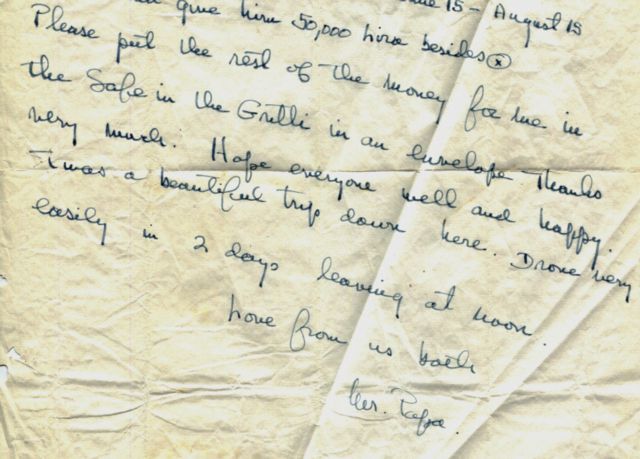 June 15 - August 15
give him 50,000 lira besides ⓧ
Please put the rest of the money for me in
the Safe in the Gritti in an envelope. Thanks
very much. Hope everyone well and happy.
It was a beautiful trip down here. Drove very
easily in 2 days leaving at noon.
Love from us both
Mr. Papa.